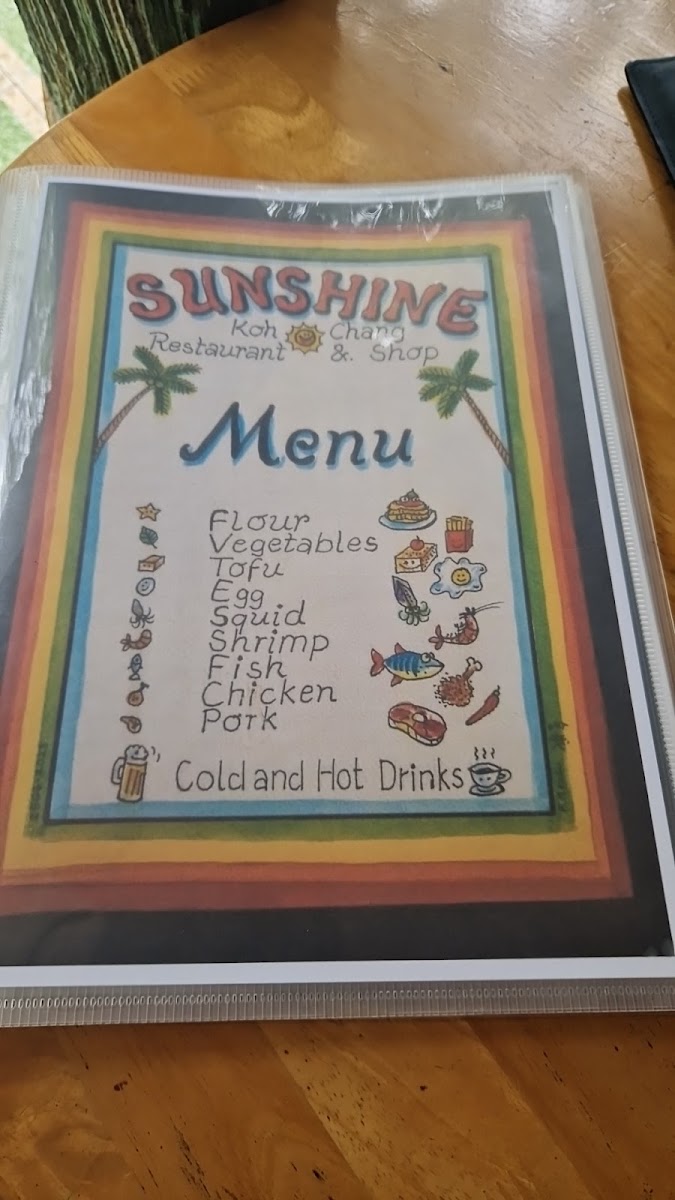 SUNSHINE
Koh Chang
Restaurant &. Shop
Menu
Flour
Vegetables
Tofu
Egg
Squid
Shrimp
Fish
Chicken
Pork
Cold and Hot Drinks